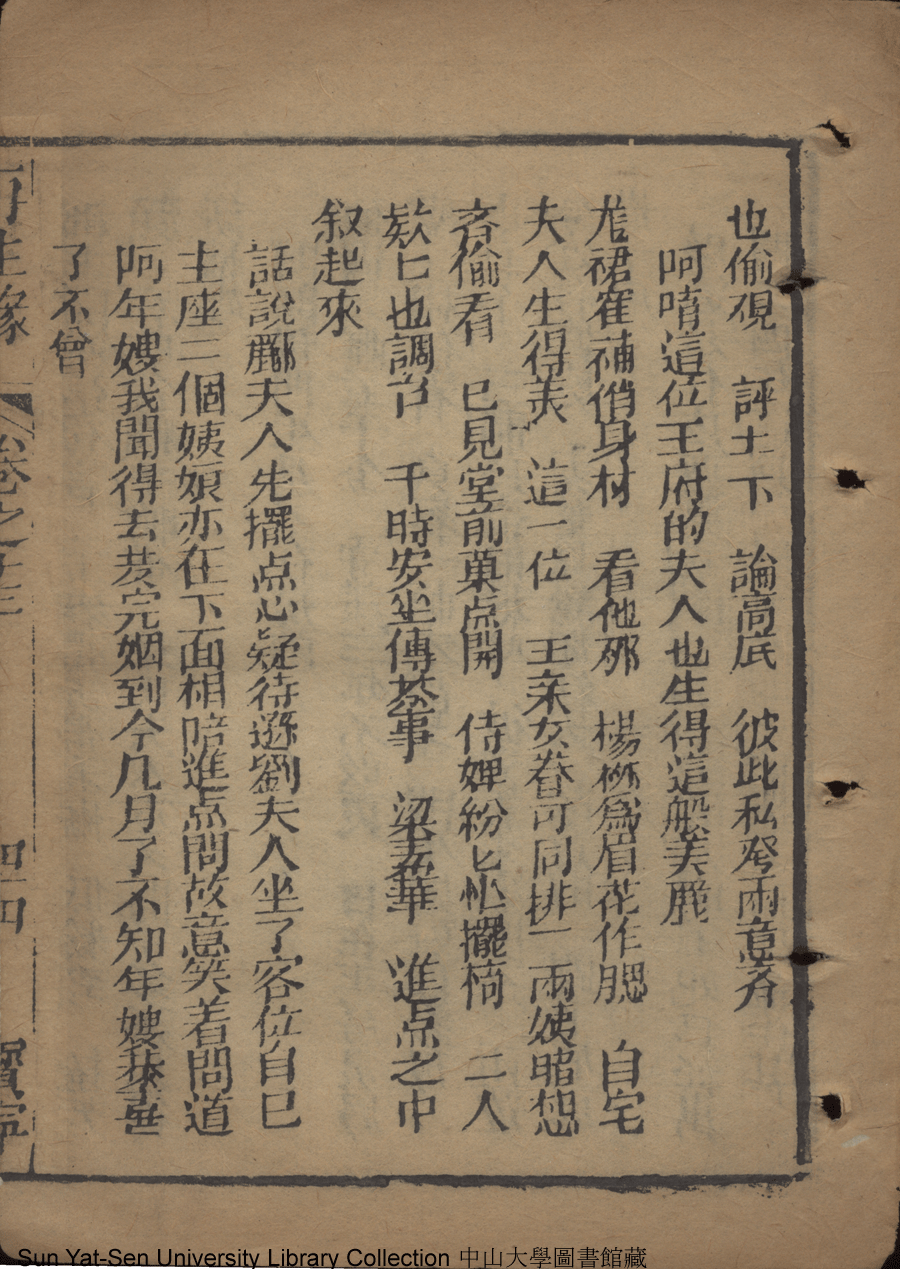 也偷視 評土下 論高底 彼此私癸兩意斉
呵唷這位王府的夫人也生得這般美𮥼
尨裙寉補俏身材 看他𨚗 楊栁爲眉花作腮 自宅
夫人生得美 這一位 王亲女眷可同排 兩姨暗想
斉偷看 巳見堂前菓点開 侍婢紛匕忙擺椅 二人
欵匕也調召 千時安坐傳茶事 梁素華 進点之中
叙起來
話說酈夫人先擺点心疑待遜劉夫人坐了客位自巳
主座二個姨娘亦在下面相陪進点問故意笑着問道
呵年嫂我聞得去芨完姻到今几月了不知年嫂恭喜
了不曾
再生緣 卷之十三 四四 寶寧
Sun Yat-Sen University Library Collection 中山大學圖書館藏